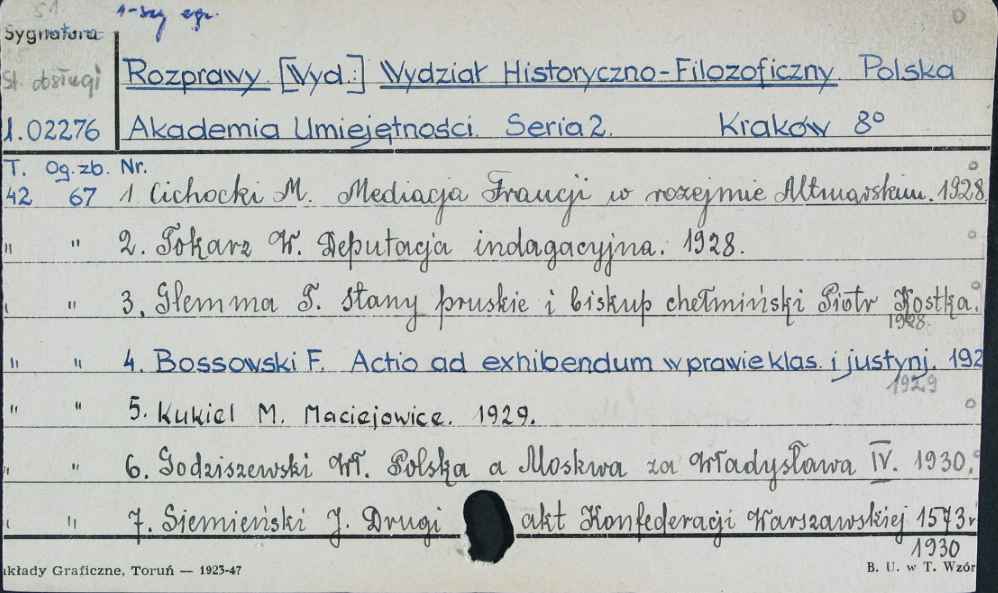 51 1-szy egz.
Sygnatura
St. obsługi
Rozprawy. [Wyd.:] Wydział Historyczno-Filozoficzny. Polska
1.02276 Akademia Umiejętności. Seria 2. Kraków 8°
T. Og.zb. Nr.
42 67 1 Cichocki M. Mediacja Francji w rozejmie Altmarskim. 1928.
" " 2. Tokarz W. Deputacja indagacyjna. 1928.
" " 3. Glemma T. Stany pruskie i biskup chełmiński Piotr Kostka.
1928.
" " 4. Bossowski F. Actio ad exhibendum w prawie klas. i justynj. 192
1929
" " 5. Kukiel M. Maciejowice. 1929.
" " 6. Godziszewski Wł. Polska a Moskwa za Władysława IV. 1930.
" " 7. Siemieński J. Drugi akt Konfederacji Warszawskiej 1573 r
1930
akłady Graficzne, Toruń — 1923-47 B. U. w T. Wzór